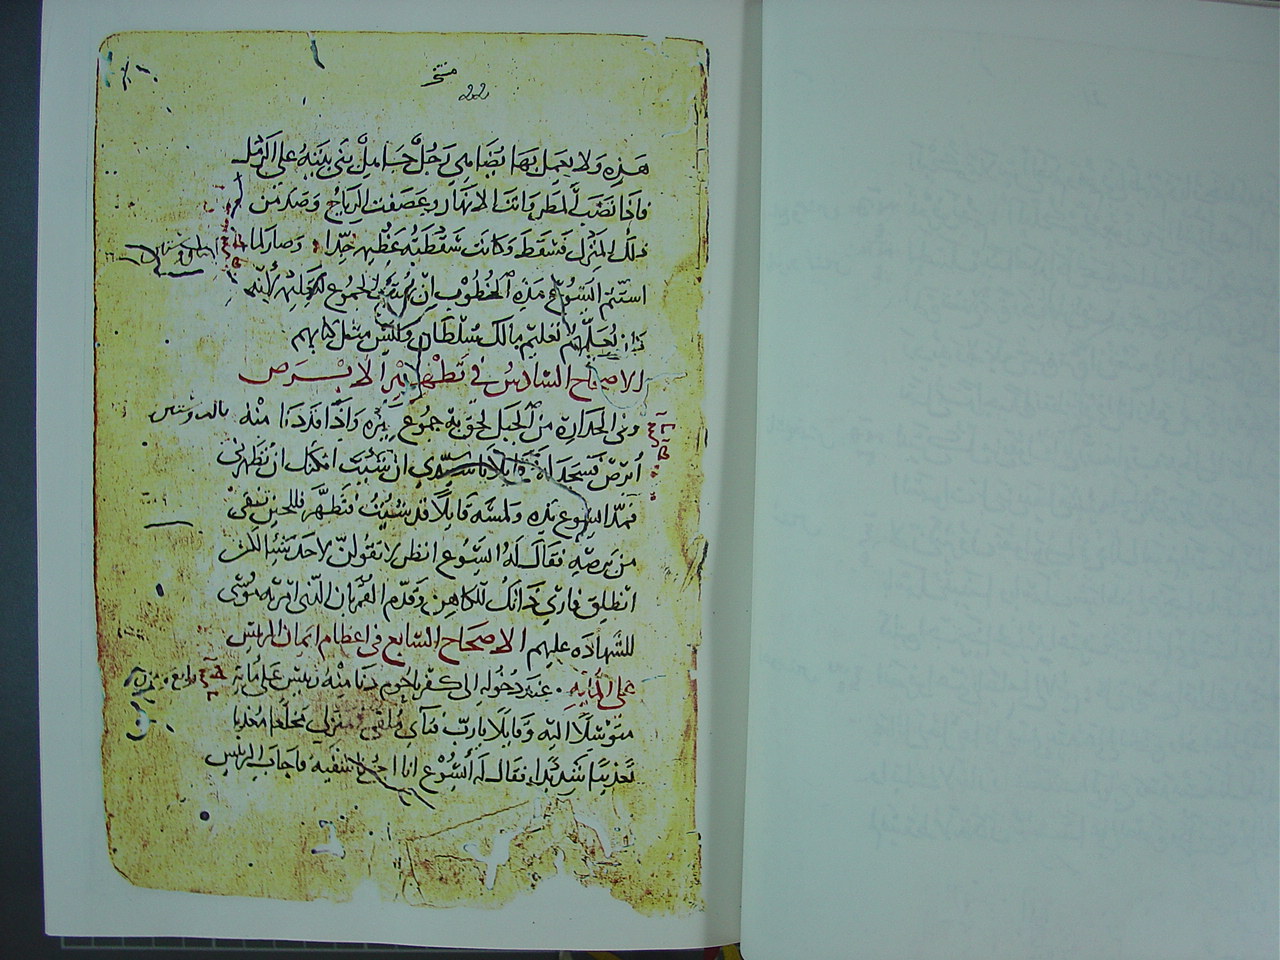 متى
22
هذه ولا يعمل بها يضاهي رجل جاهل بنى بيته على الرمل
فاذا نصب المطر واتت الانهار وعصفت الرياح وصدمن
ذلك المنزل فسقط وكانت سقطته عظيمه جدا وصار لما
استتم ايسوع هذه الخطوب ان بهتت الجموع لتعليمه لانه
كان يعلمهم تعليم مالك سلطان وليس مثل كتابهم
الاصحاح السادس في تطهير الابرص
وفى انحداره من الجبل لحق به جموع كثيره واذا قد دنا منه
ابرص فسجد له قايلا يا سيدي ان شيت امكنك ان تطهرني
فمد ايسوع يده ولمسه قايلا قد شيت فتطهر فللحين تنقى
من برصه فقال له ايسوع انظر لا تقولن لاحد شيا لكن
انطلق فاري ذاتك للكاهن وقدم القربان الذي امر به موسى
للشهاده عليهم الاصحاح السابع في اعظام ايمان الريس
على المايه عند دخوله الى كفرناحوم دنا منه رييس على مايه
متوسلا اليه وقايلا يا رب فتاي ملقى في منزلي مخلعا معذبا
تعذيبا شديدا فقال له ايسوع انا اجي واشفيه فاجاب الريس